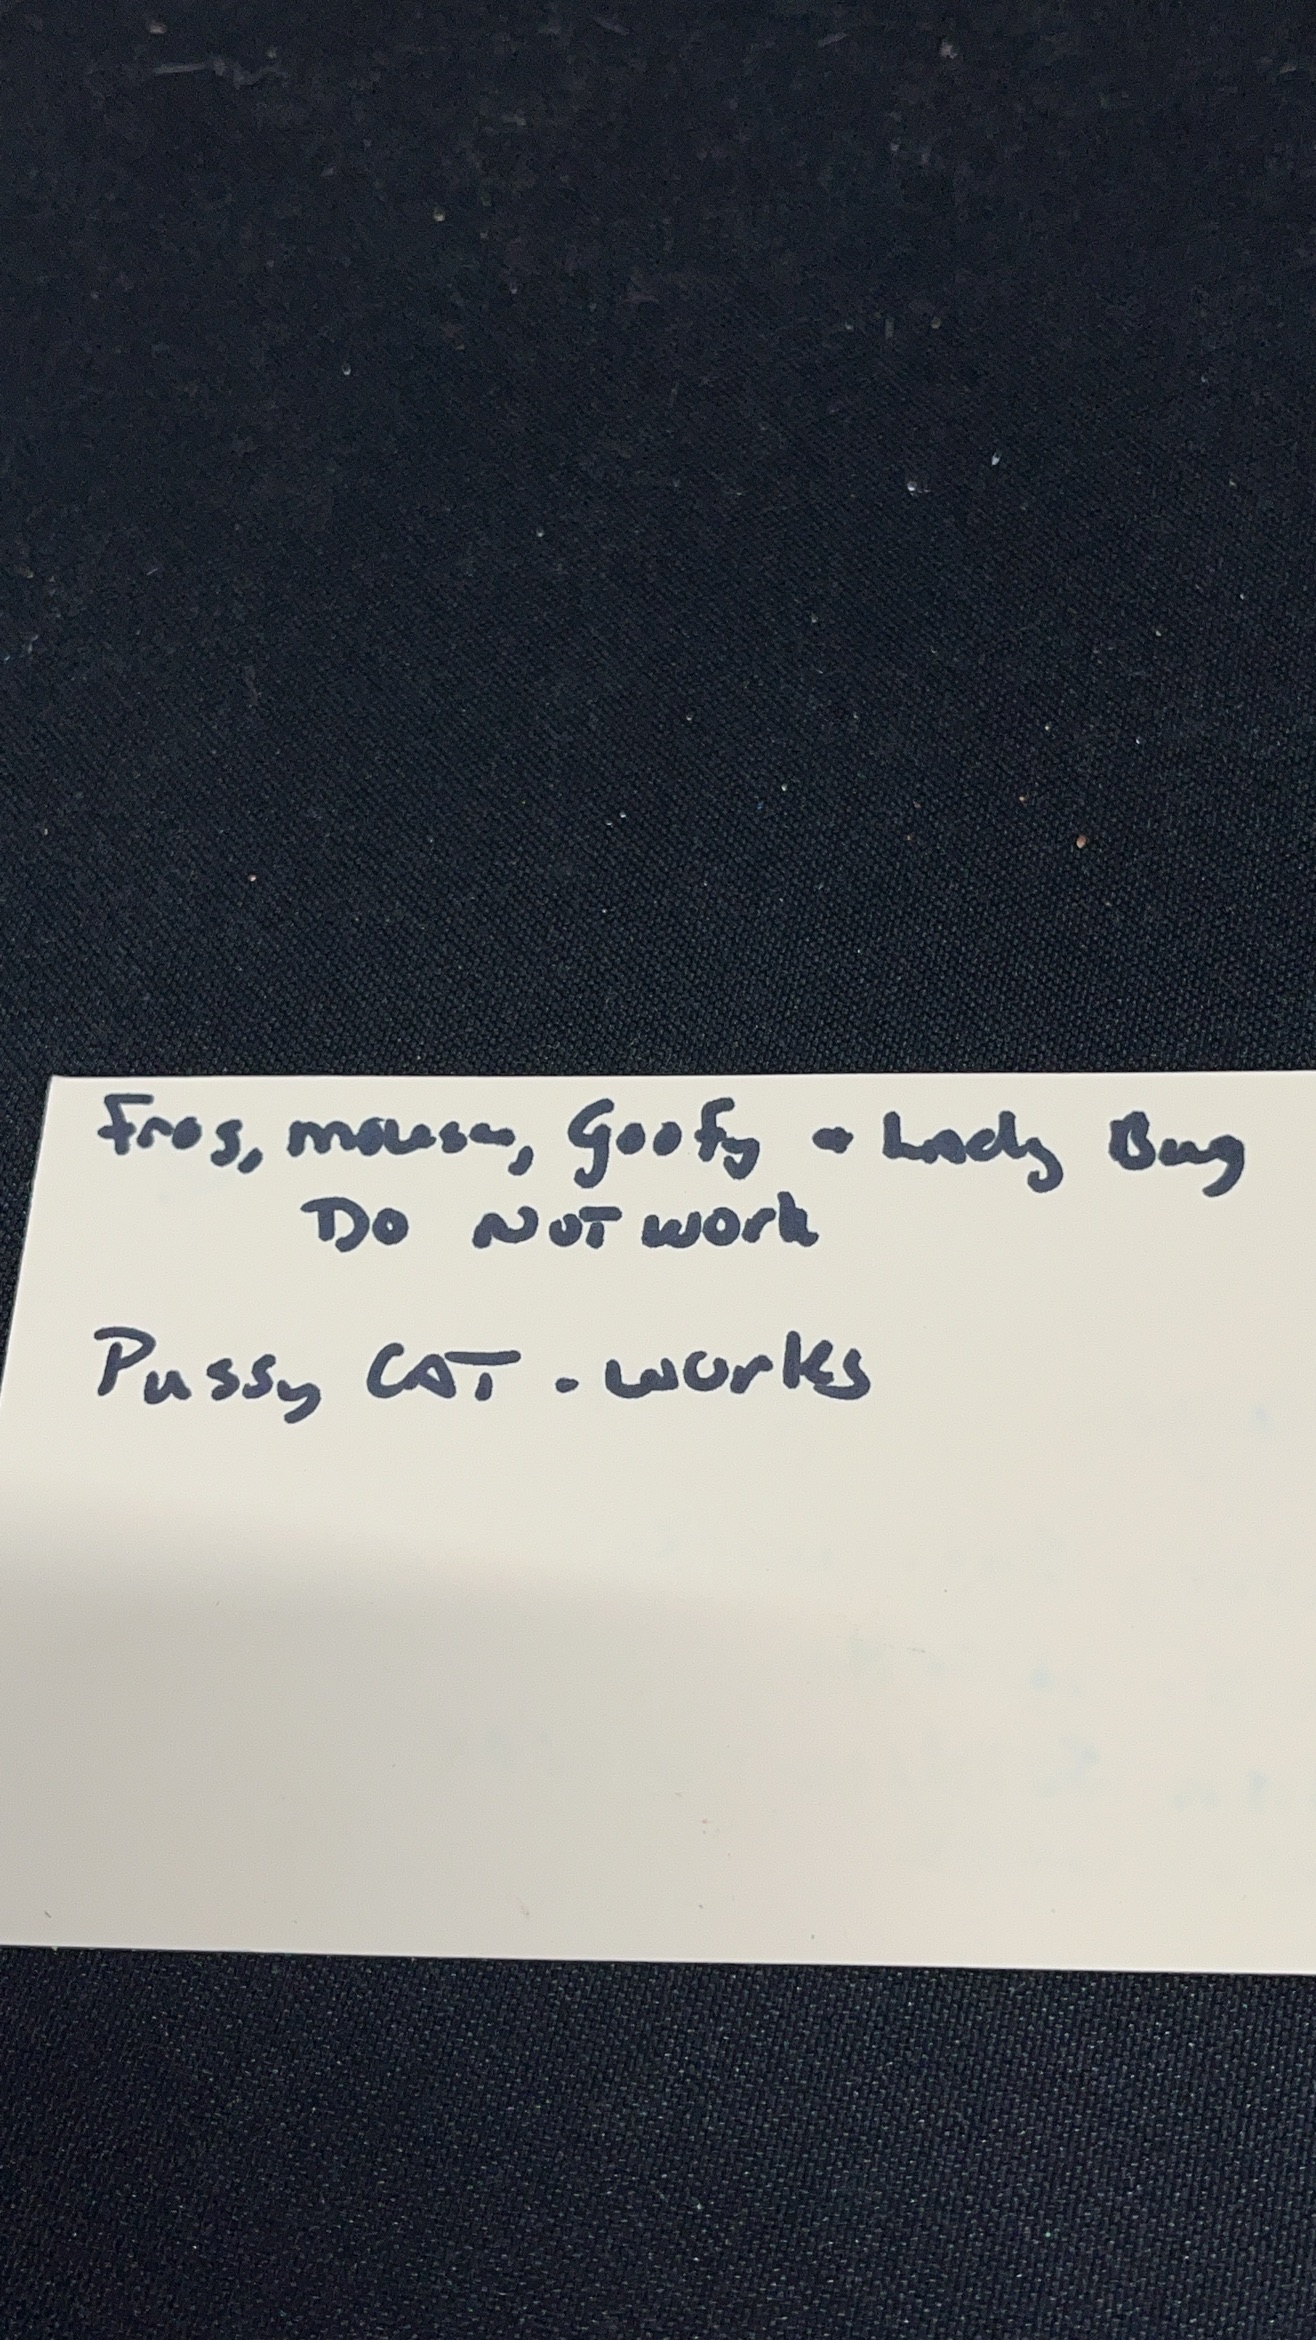 Frog, mouse, Goofy + Lady Bug
Do NOT work
Pussy CAT - works